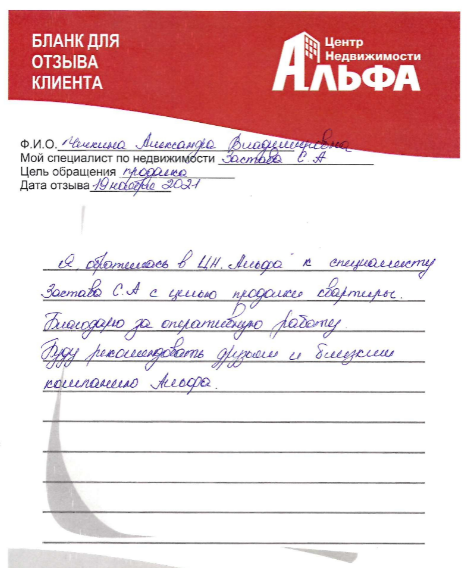 БЛАНК ДЛЯ
ОТЗЫВА
КЛИЕНТА
Центр
Недвижимости
АЛЬФА
Ф.И.О. Александра Владимировна
Мой специалист по недвижимости Застава С А
Цель обращения продажа
Дата отзыва 19 ноября 2021
Я обратилась в ЦН "Альфа" к специалисту
Застава С.А с целью продажи квартиры.
Благодарю за оперативную работу.
Буду рекомендовать друзьям и близким
компанию Альфа.